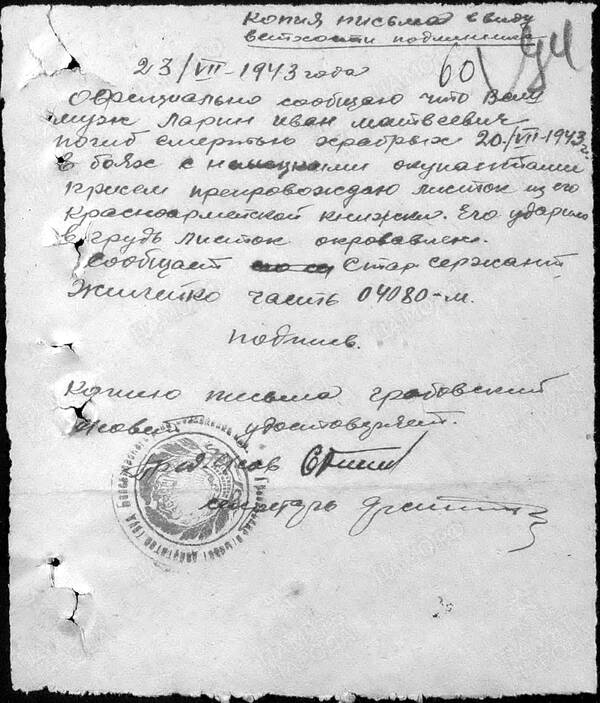 Копия письма ввиду
ветхости подлинника
23/VII-1943 года
60
Официально сообщаю что Ваш
муж Ларин Иван Матвеевич
погиб смертью храбрых 20/VII-1943 г.
в боях с немецкими окупантами
При сем препровождаю листок из его
Красноармейской книжки. Его ударило
в грудь листок окровавлен.
Сообщает Стар сержант
часть 04080-м.
подпись.
Копию письма Грабовский
Совет удостоверяет.
Пред. с/сов
секретарь